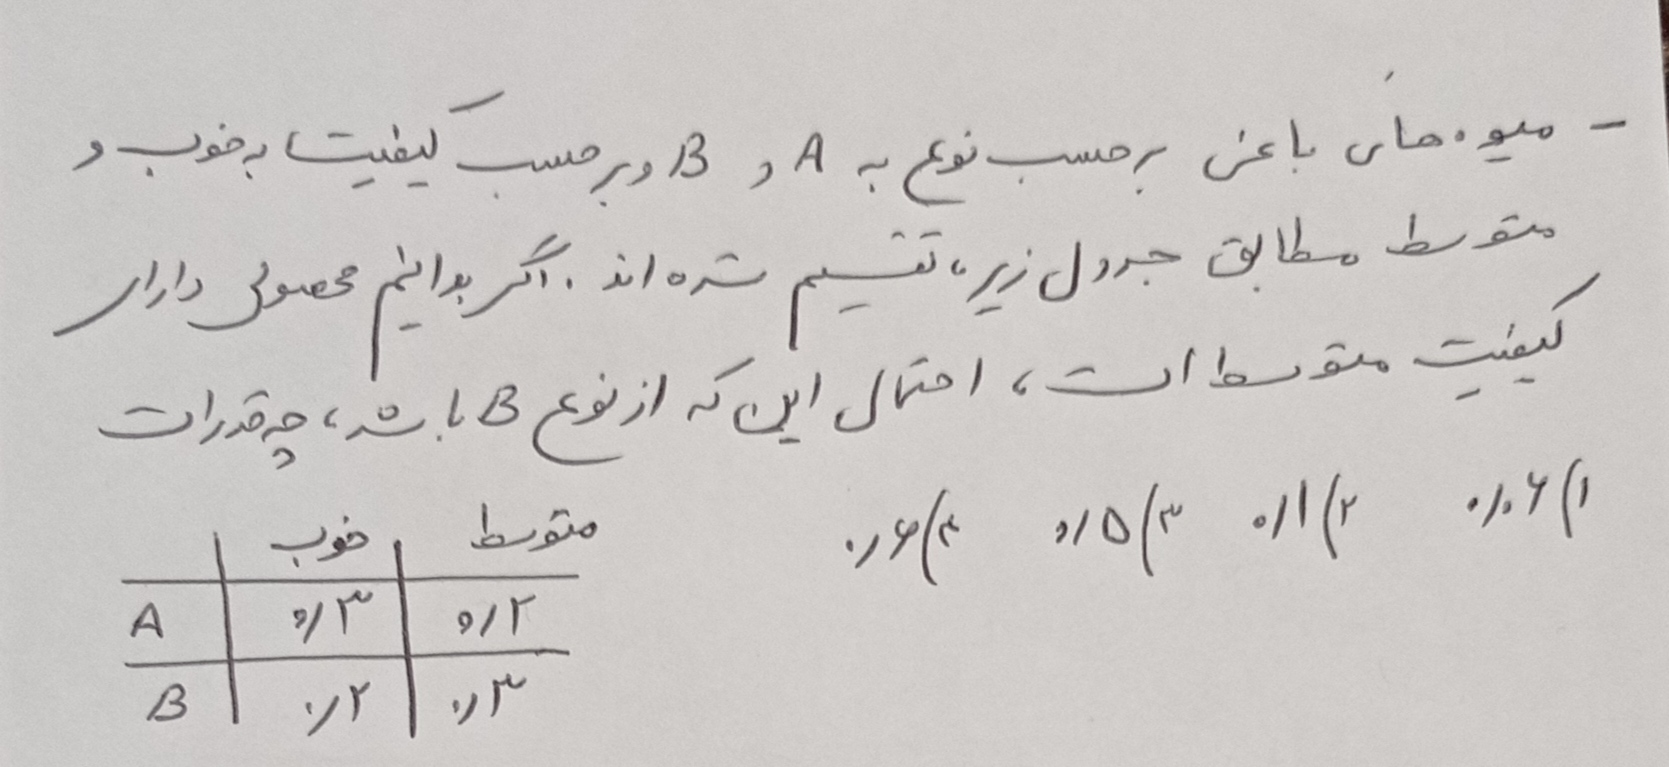 - میوه‌های باغی برحسب نوع به A و B و برحسب کیفیت به خوب و
متوسط مطابق جدول زیر، تقسیم شده‌اند. اگر بدانیم محصولی دارای
کیفیت متوسط است، احتمال این که از نوع B باشد، چه قدر است
۱) ۰/۰۶ ۲) ۰/۱ ۳) ۰/۵ ۴) ۰/۶
خوب متوسط
A ۰/۳ ۰/۲
B ۰/۲ ۰/۳